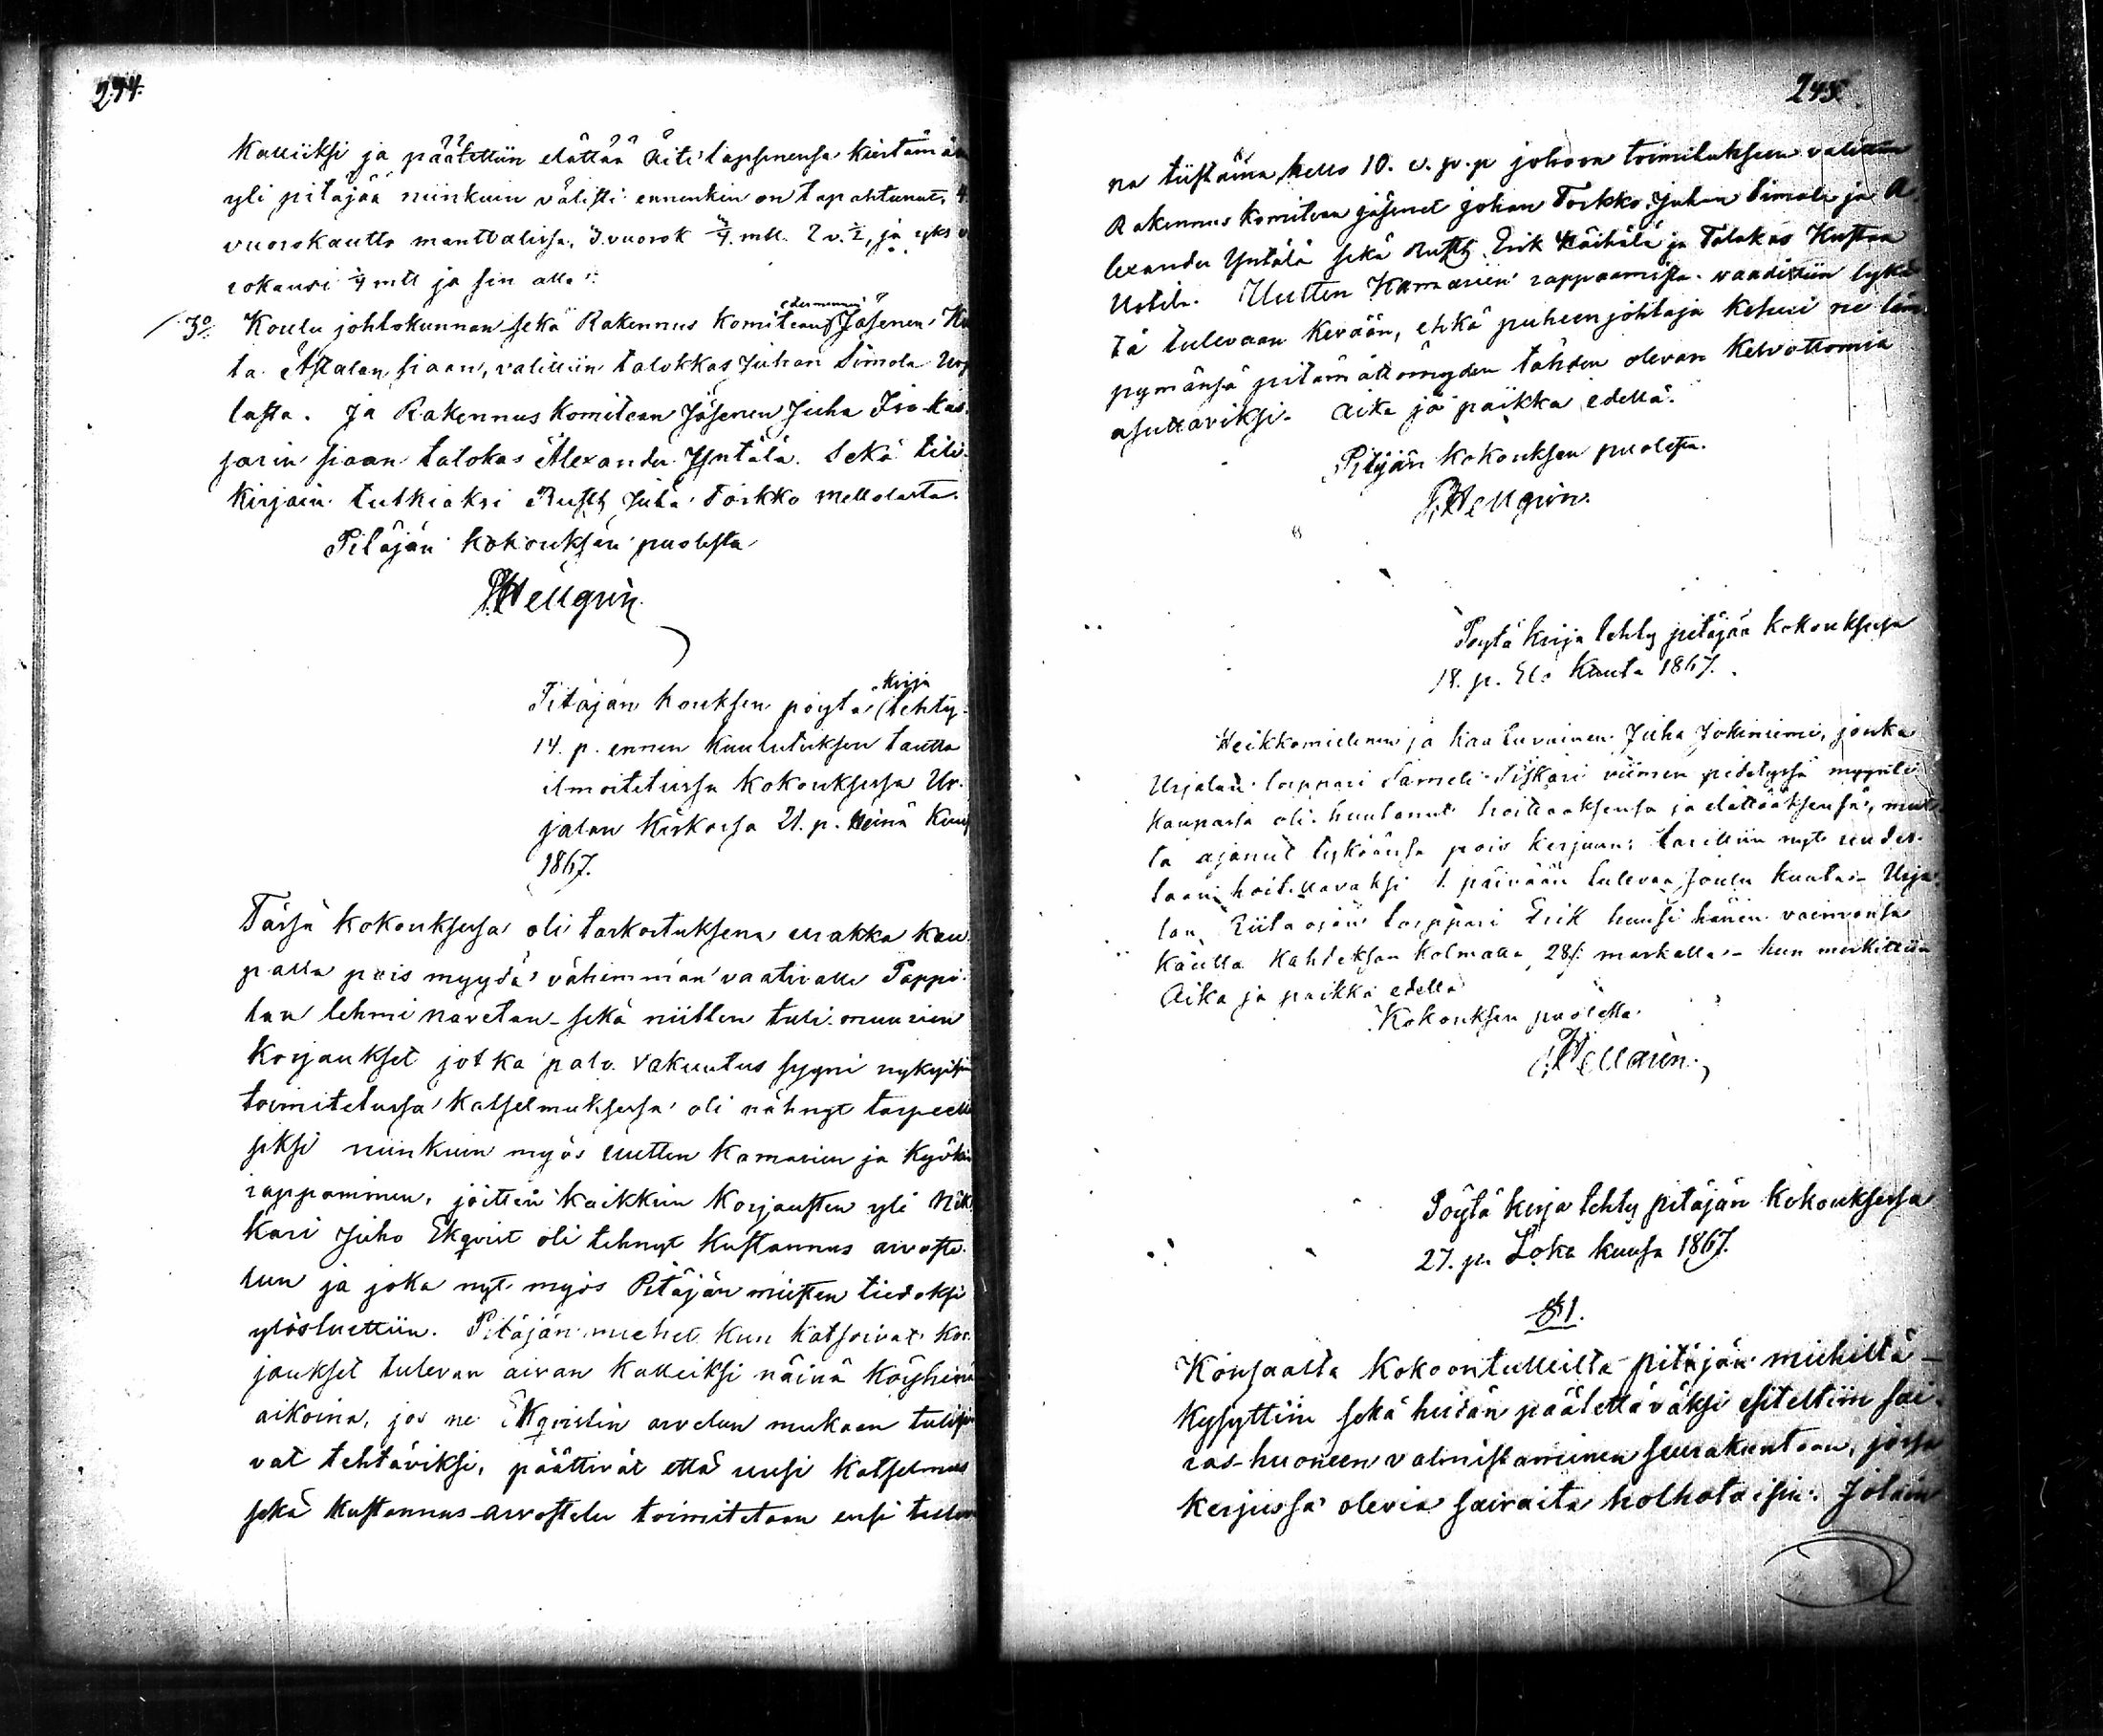 244.
Kalliiksi ja päätettiin elättää Äiti lapsinensa kiertämän
yli pitäjää niinkuin välisti ennenkin on tapahtunut, 4
vuorokautta manttalissa, 3 vuorok ¾ mtl. 2 v. ½, ja yks v
rokausi ¼ mtl ja sen alle.
3o Koulu johtokunnan sekä Rakennus komitean edesmennen Jäsenen, Ku
ta Astalan siaan, valittiin talokkas Juhan Simola Urj
lasta. ja Rakennus komitean Jäsenen Juha Iso-Kas.
sarin siaan talokas Alexander Yntälä. Sekä tili-
kirjain tutkiaksi Rusth Juha Torkko Mellolasta.
Pitäjän kokouksen puolesta
Hellgrén
Pitäjän kouksen pöytä kirja tehty
14. p. ennen kuulutuksen kautta
ilmoitetussa kokouksessa Ur-
jalan kirkossa 21. p. Heinä Kuus
1867.
Tässä kokouksessa oli tarkoituksena urakka kau-
palla pois myydä vähimmän vaativalle Pappi-
lan lehmi navetan sekä niitten tuli-muurien
korjaukset jotka palo vakuutus syyni nykyisin
toimitetussa katselmuksessa oli nähnyt tarpeelli
seksi niinkuin myös uutten kamarien ja kyökin
rappaminen, joitten kaikkien korjausten yli Nik
kari Juho Ekqvist oli tehnyt kustannus arvoste-
lun ja joka nyt myös Pitäjän miesten tiedoksi
ylösluettiin. Pitäjän miehet kuin katsoivat kor-
jaukset tulevan aivan kalleiksi näinä köyhinä
aikoina, jos ne Ekqvistin arvelun mukaan tulisi
vat tehtäviksi, päättivät että uusi katselmus
sekä kustannus-arvostelu toimitetaan ensi tule
245.
na tiistaina kello 10. e. p. p johon toimitukseen valittiin
Rakennus komitean jäsenet Johan Torkko, Juhan Simola ja A-
lexander Yntälä sekä Rusth. Erik Käihälä ja Talokas Kustaa
Uotila. Uutten Kamarien rappaamista vaadittiin lykä-
tä tulevaan kevään, ehkä puheenjohtaja kehui ne läm
pymänsä pitämättömyden tähden olevan kelvottomia
asuttaviksi. Aika ja paikka edellä.
Pitäjän kokouksen puolesta.
Hellgrén.
Pöytä kirja tehty pitäjän kokouksessa
18. p. Elo Kuuta 1867.
Heikkomielinen ja kaatuvainen Juha Jokiniemi, jonka
Urjalan torppari Sameli Piskari viimen pidetyssä myynti
kaupassa oli huutanut hoitaaksensa ja elättääksensä, mut-
ta ajanut tyköänsä pois kerjuun; tarittiin nyt uudes-
taan hoitettavaksi 1. päivään tulevaa Joulu kuuta - Urja-
lan torppari Erik huusi hänen vaimonsa
kautta Kahdeksan kolmatta, 28/: markalla - kun merkittiin
Aika ja paikka edellä
Kokouksen puolesta
Hellgrén.
Pöytä kirja tehty pitäjän kokouksessa
27. p. Loka kuusa 1867.
§ 1.
Kousaalta kokoontulleilta pitäjän miehiltä -
kysyttiin sekä heidän päätettäväksi esiteltiin sai-
ras-huoneen valmistaminen seurakuntaan, jossa
kerjussa olevia sairaita holhotaisin. Jotain